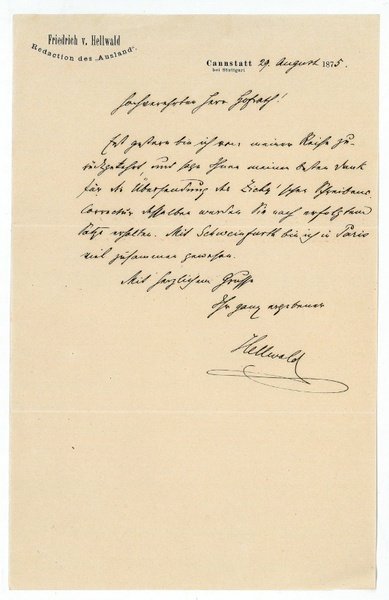 Friedrich v. Hellwald
Redaction des „Ausland“.
Cannstatt 29. August 1875.
bei Stuttgart
Hochverehrter Herr Hofrath!
Erst gestern bin ich von meiner Reise zu-
rückgekehrt und sage Ihnen meinen besten Dank
für die Übersendung des Zichy'schen Schreibens.
Correctur desselben werden Sie nach erfolgtem
Satze erhalten. Mit Schweinfurth bin ich in Paris
viel zusammen gewesen.
Mit herzlichem Grusse
Ihr ganz ergebener
Hellwald